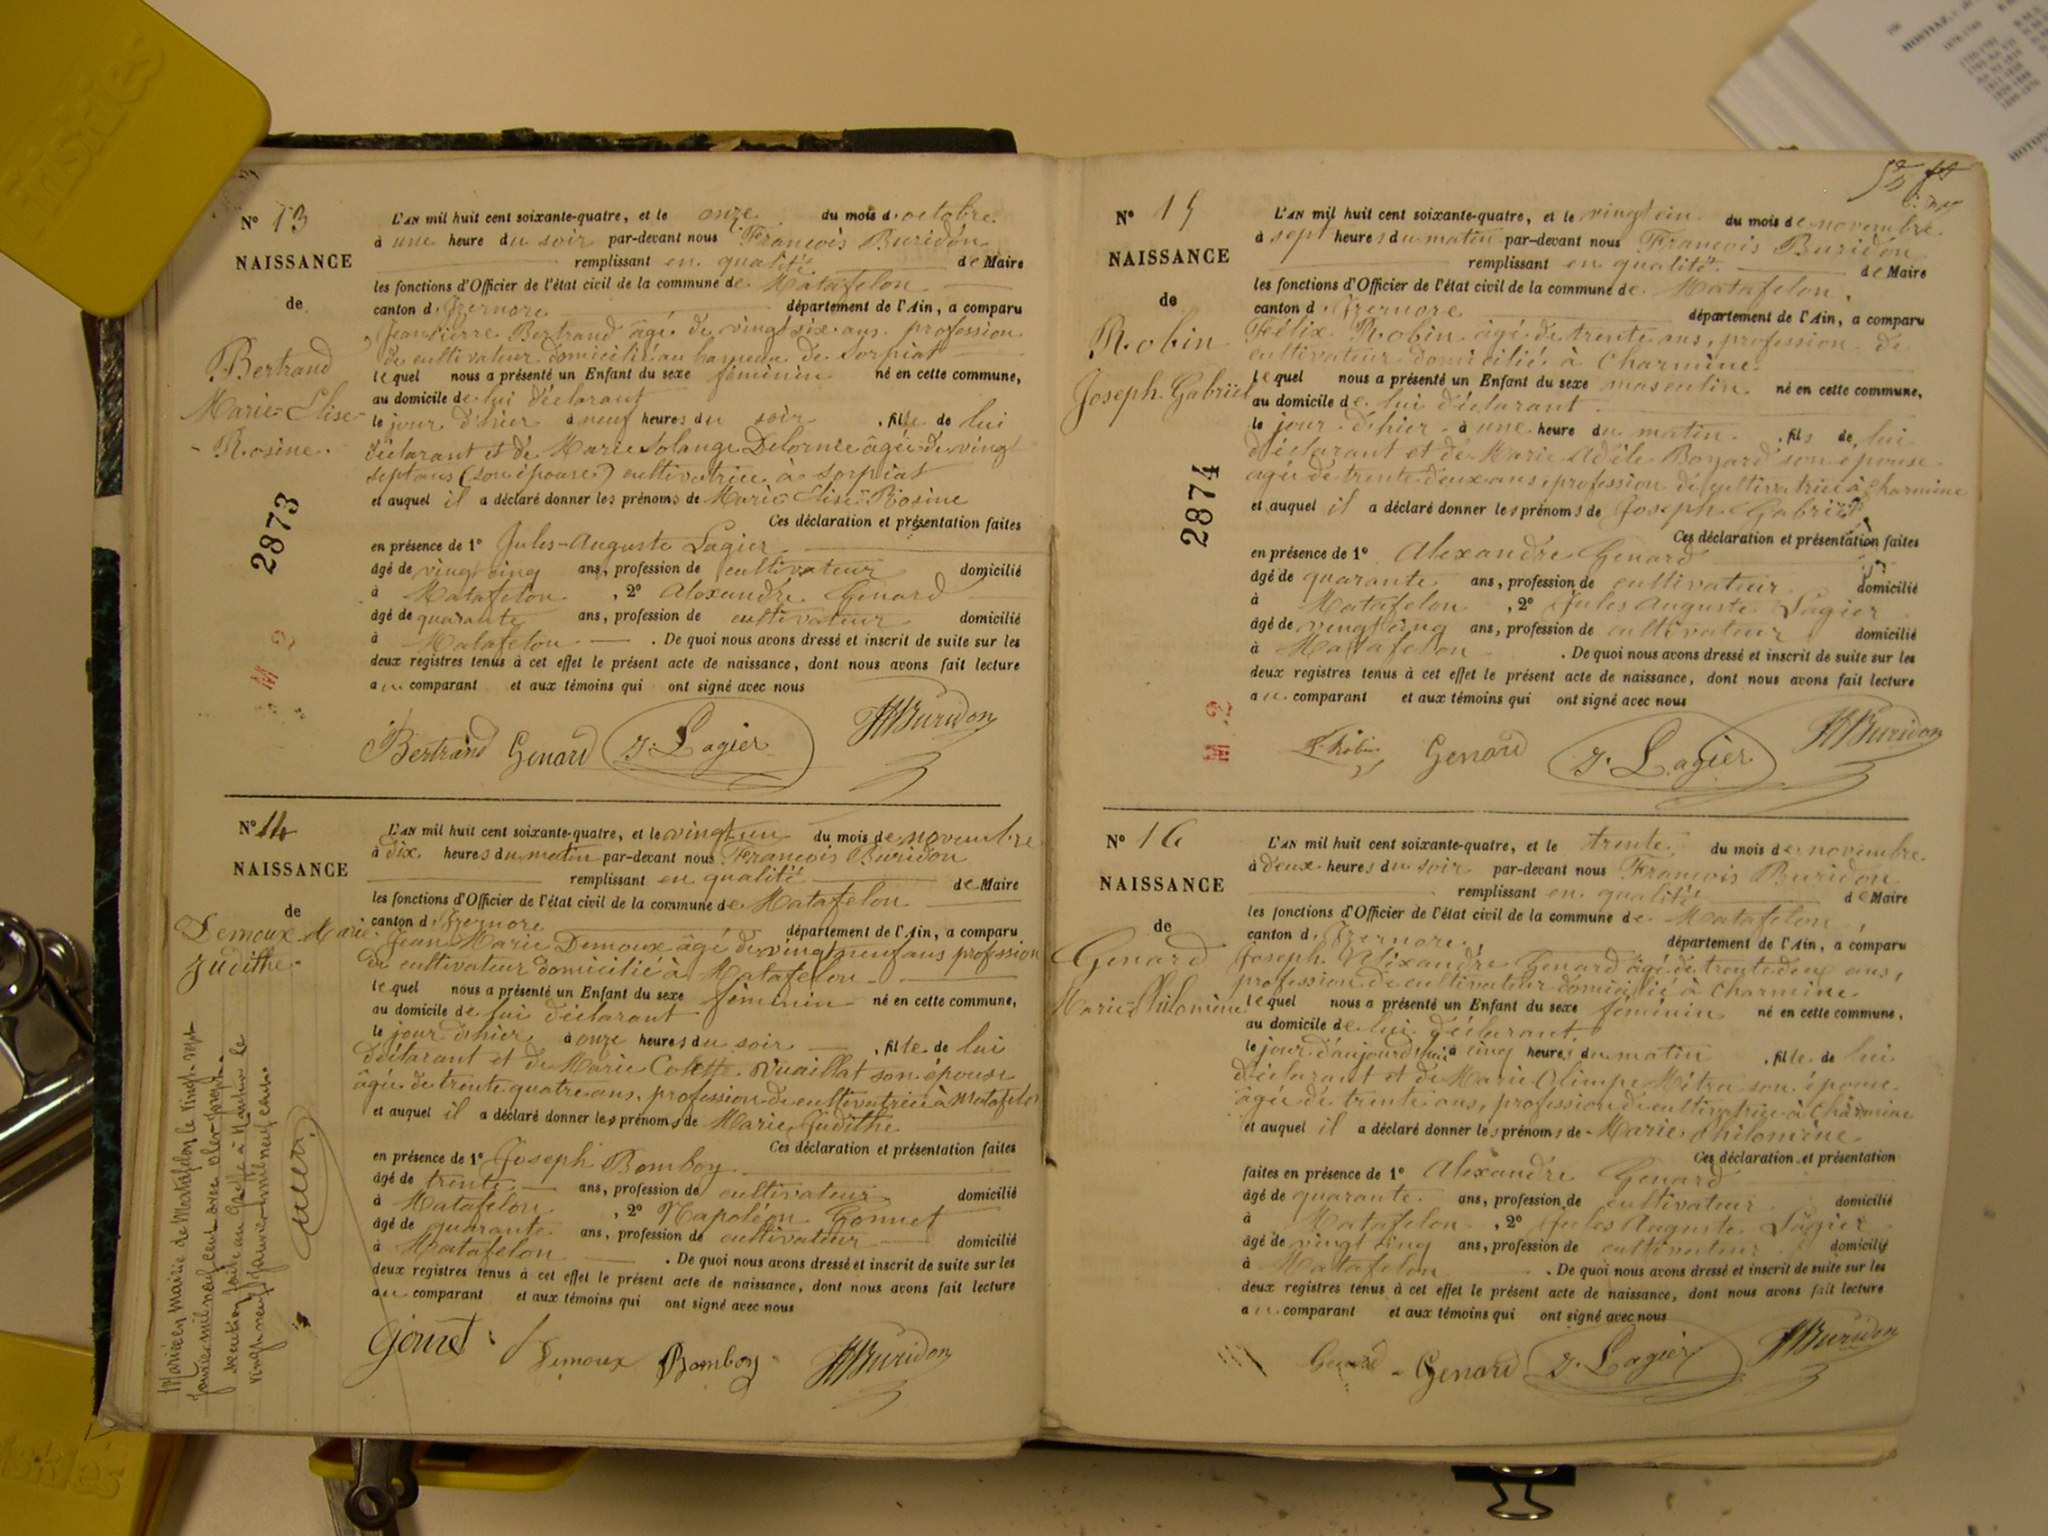 Friskies
N° 13
NAISSANCE
de
Bertrand
Marie-Elise
-Rosine.
2873
L'AN mil huit cent soixante-quatre, et le onze du mois d'octobre
à une heure du soir par-devant nous François Buridon
remplissant en qualité de Maire
les fonctions d'Officier de l'état civil de la commune de Matafelon
canton d'Izernore département de l'Ain, a comparu
Jean Pierre Bertrand âgé de vingt six ans profession
de cultivateur domicilié au hameau de Sorpiat
lequel nous a présenté un Enfant du sexe féminin né en cette commune,
au domicile de lui déclarant
le jour d'hier à neuf heures du soir, fille de lui
déclarant et de Marie Solange Delorme âgée de vingt
sept ans (son épouse) cultivatrice à Sorpiat
et auquel il a déclaré donner les prénoms de Marie-Elise-Rosine
Ces déclaration et présentation faites
en présence de 1° Jules-Auguste Lagier
âgé de vingt cinq ans, profession de cultivateur domicilié
à Matafelon, 2° Alexandre Genard
âgé de quarante ans, profession de cultivateur domicilié
à Matafelon. De quoi nous avons dressé et inscrit de suite sur les
deux registres tenus à cet effet le présent acte de naissance, dont nous avons fait lecture
au comparant et aux témoins qui ont signé avec nous
Bertrand Genard J. Lagier Buridon
N° 14
NAISSANCE
de
Demoux Marie
Judithe.
L'AN mil huit cent soixante-quatre, et le vingt un du mois de novembre
à dix heures du matin par-devant nous François Buridon
remplissant en qualité de Maire
les fonctions d'Officier de l'état civil de la commune de Matafelon
canton d'Izernore département de l'Ain, a comparu
Jean Marie Demoux âgé de vingt neuf ans profession
de cultivateur domicilié à Matafelon
lequel nous a présenté un Enfant du sexe féminin né en cette commune,
au domicile de lui déclarant
le jour d'hier à onze heures du soir, fille de lui
déclarant et de Marie Colette Vuaillat son épouse
âgée de trente quatre ans, profession de cultivatrice à Matafelon
et auquel il a déclaré donner les prénoms de Marie Judithe
Ces déclaration et présentation faites
en présence de 1° Joseph Bomboy
âgé de trente ans, profession de cultivateur domicilié
à Matafelon, 2° Napoléon Gonnet
âgé de quarante ans, profession de cultivateur domicilié
à Matafelon. De quoi nous avons dressé et inscrit de suite sur les
deux registres tenus à cet effet le présent acte de naissance, dont nous avons fait lecture
au comparant et aux témoins qui ont signé avec nous
Demoux Bomboy Buridon
Mariée en Mairie de Matafelon le vingt sept
janvier mil neuf cent avec
mention faite au Greffe à Nantua le
vingt neuf janvier mil neuf cent
N° 15
NAISSANCE
de
Robin
Joseph Gabriel
2874
L'AN mil huit cent soixante-quatre, et le vingt cin du mois de novembre
à sept heures du matin par-devant nous François Buridon
remplissant en qualité de Maire
les fonctions d'Officier de l'état civil de la commune de Matafelon
canton d'Izernore département de l'Ain, a comparu
Félix Robin âgé de trente ans, profession de
cultivateur domicilié à Charmine
lequel nous a présenté un Enfant du sexe masculin né en cette commune,
au domicile de lui déclarant
le jour d'hier à une heure du matin, fils de lui
déclarant et de Marie Adèle son épouse
âgée de trente deux ans, profession de cultivatrice à Charmine
et auquel il a déclaré donner les prénoms de Joseph Gabriel
Ces déclaration et présentation faites
en présence de 1° Alexandre Genard
âgé de quarante ans, profession de cultivateur domicilié
à Matafelon, 2° Jules Auguste Lagier
âgé de vingt cinq ans, profession de cultivateur domicilié
à Matafelon. De quoi nous avons dressé et inscrit de suite sur les
deux registres tenus à cet effet le présent acte de naissance, dont nous avons fait lecture
au comparant et aux témoins qui ont signé avec nous
Genard J. Lagier Buridon
N° 16
NAISSANCE
de
Genard
Marie-Philomène
L'AN mil huit cent soixante-quatre, et le trente du mois de novembre
à deux heures du soir par-devant nous François Buridon
remplissant en qualité de Maire
les fonctions d'Officier de l'état civil de la commune de Matafelon
canton d'Izernore, département de l'Ain, a comparu
Joseph Alexandre Genard âgé de trente deux ans,
profession de cultivateur domicilié à Charmine
lequel nous a présenté un Enfant du sexe féminin né en cette commune,
au domicile de lui déclarant,
le jour d'aujourd'hui à cinq heures du matin, fille de lui
déclarant et de Marie Olimpe Métra son épouse
âgée de trente ans, profession de cultivatrice à Charmine
et auquel il a déclaré donner les prénoms de Marie Philomène
Ces déclaration et présentation
faites en présence de 1° Alexandre Genard
âgé de quarante ans, profession de cultivateur domicilié
à Matafelon, 2° Jules Auguste Lagier
âgé de vingt cinq ans, profession de cultivateur domicilié
à Matafelon. De quoi nous avons dressé et inscrit de suite sur les
deux registres tenus à cet effet le présent acte de naissance, dont nous avons fait lecture
au comparant et aux témoins qui ont signé avec nous
Genard Genard J. Lagier Buridon